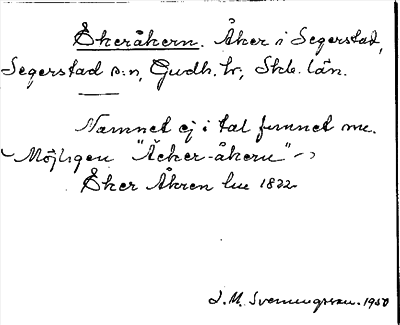 Åkeråkern. Åker i Segerstad,
Segerstad s:n, Gudh. hr, Skb. län.
Namnet ej i tal funnet nu.
Möjligen "Åcker-åkern"
Åker Åkren lue 1822
J. M. Svenningsson. 1950